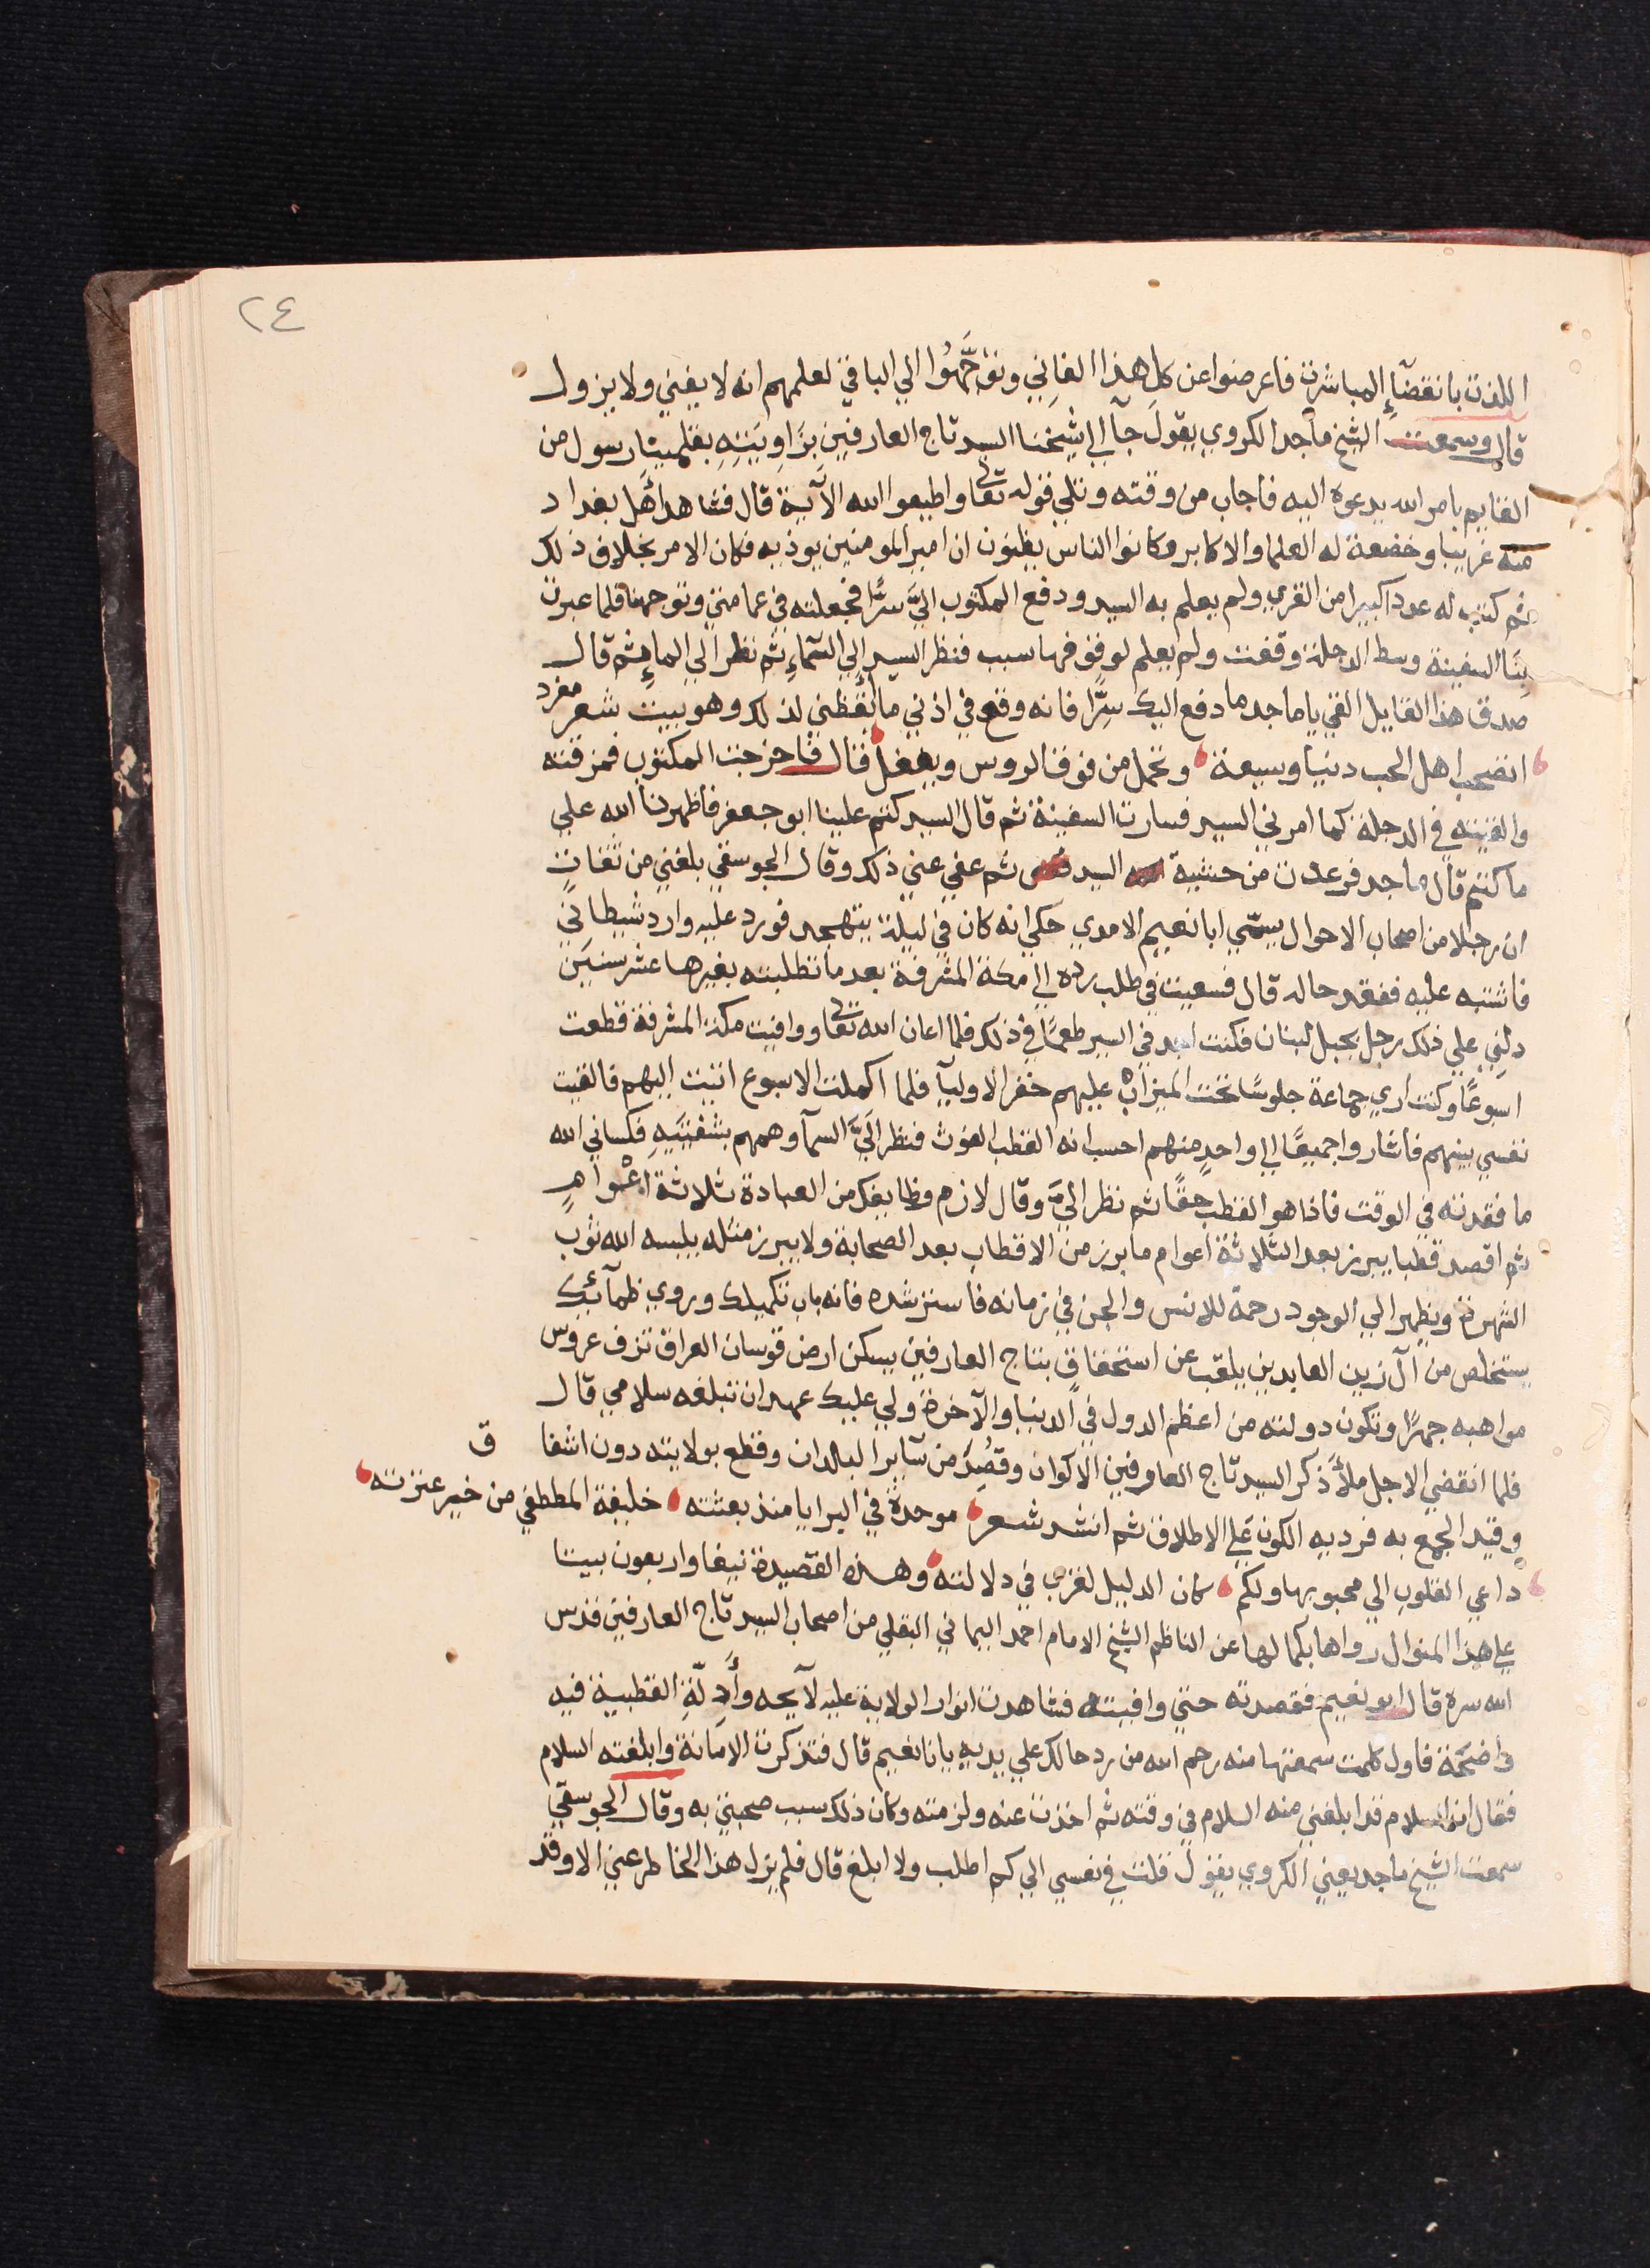 ٢٤
اللذت بانقضآءِ المباشرت فاعرضوا عن كل هذا الفاني وتوَجَّهُوا الي الباقي لعلمهم انه لا يفني ولا يزول
قال وسمعت الشيخ ماجد الكروي يقول جآ الي شيخنا السيد تاج العارفين بزاويَتِهِ بقلمينا رسول من
القايم بامر الله يدعوه اليه فاجاب من وقته وتلي قوله تعالي واطيعوا الله الآية قال فشاهد اهل بغداد
منه غريبا وخضعة له العلما والاكابر وكانوا الناس يظنون ان امير المومنين يوذيه فكان الامر بخلاف ذلك
ثم كتب له عددا كبيرا من القري ولم يعلم به السيد ودفع المكتوب اليَّ سرًّا فجعلته في عمامتي وتوجهنا فلما عبرت
بنَا السفينة وسط الدجلة وقفت ولم يعلم لوقوفها سبب فنظر السيد الي السَّمآءِ ثم نظر الي الماءِ ثم قال
صدق هذا القايل القي يا ماجد ما دفع اليك سِرًّا فانه وقع في اذني ما ايقظني لذلك وهو بيت شعر مفرد
اتضحب اهل الحب دنيا وسيعة وتحمل من فوق الروس ويغفل قال فاخرجت المكتوب فمزقته
والقيته في الدجلة كما امرني السيد فسارت السفينة ثم قال السيد كتم علينا ابو جعفر فاظهرنا الله علي
ما كتم قال ماجد فرعدت من خشية السيد ثم عفي عني ذلك وقال الجوسقي بلغني من ثقات
ان رجلا من اصحاب الاحوال يسمّي ابا نعيم الامدي حكي انه كان في ليلة يتهجد فورد عليه وارد شيطاني
فاشتبه عليه ففقد حاله قال فسعيت في طلب رده الي مكة المشرفة بعد ما تطلبته بغيرها عشر سنين
دلني علي ذلك رجل بجبل لبنان فكنت اجد في السير طمعًا في ذلك فلما اعان الله تعالي ووافيت مكة المشرفة قطعت
اسبوعًا وكنت اري جماعة جلوسًا تحت الميزاب عليهم خفر الاوليآ فلما اكملت الاسبوع اتيت اليهم فالقيت
نفسي بينهم فاشاروا جميعًا الي واحدٍ منهم احسب انه القطب الغوث فنظر اليَّ السمآ وهمهم بشفتيَهِ فكساني الله
ما فقدته في الوقت فاذا هو القطب حقًّا ثم نظر اليّ وقال لازم وظايفك من العبادة ثلاثة اعْوامٍ
ثم اقصد قطبا يبرز بعد الثلاثة اعوام ما برز من الاقطاب بعد الصحابة ولا يبرز مثله يلبسه الله ثوب
الشهرة ويظهر الي الوجود رحمة للانس والجن في زمانه فاسترشده فانه باب تكميلك وروي ظمآئك
يستخلص من آل زين العابدين يلقب عن استحقاقٍ بتاج العارفين يسكن ارض قوسان العراق تزف عروس
مواهبه جهرًا وتكون دولته من اعظم الدول في الدنيا والآخرة ولي عليك عهد ان تبلغه سلامي قال
فلما انقضي الاجل ملأ ذكر السيد تاج العارفين الاكوان وقُصِدَ من سآير البلدان وقطع بولايته دون اشفا ق
وقيد الجمع به فرديه الكون علي الاطلاق ثم انشد شعر موحدة في البرايا منذ بعثته خليفة المصطفي من خير عنزته
داعي القلوب الي محبوبها ولكم كان الدليل لغزي في دلالته وهذه القصيدة نيفا واربعون بيتا
علي هذا المنوال رواها بكمالها عن الناظم الشيخ الامام احمد اليماني البقلي من اصحاب السيد تاج العارفين قدس
الله سره قال ابو نعيم فقصدته حتي وافيته فشاهدت انوار الولاية عليه لآيحه وأدِلّةِ القطبية فيه
واضحَة فاول كلمت سمعتها منه رحم الله من رد حالك علي يديهِ يا نا نعيم قال فتذكرت الامَانة وابلغته السلام
فقال ان السلام قد ابلغني منه السلام في وقته ثم اخذت عنه ولزمته وكان ذلك سبب صحبتي به وقال الجوسقي
سمعت الشيخ ماجد يعني الكروي يقول قلت في نفسي الي كم اطلب ولا ابلغ قال فلم يزل هذا الخاطر عني الا وقد